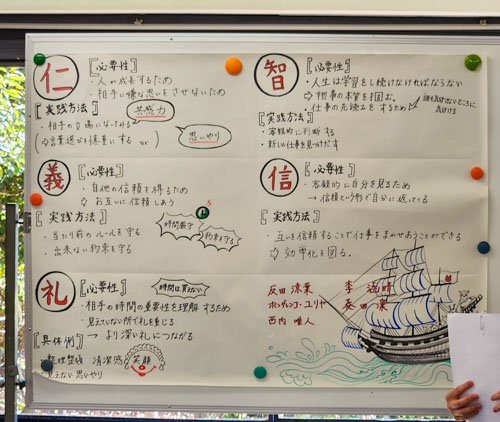 仁
[必要性]
・人が成長するため
・相手に嫌な思いをさせないため
[実践方法]
共感力
・相手の立場になってみる
(⇨言葉遣いを慎重にする
思いやり
義
[必要性]
・自他の信頼を得るため
⇨ お互いに信頼しあう
[実践方法]
・当たり前のルールを守る
・出来ない約束を守る
時間厳守
約束を守る
礼
[必要性]
時間は買えない
・相手の時間の重要性を理解するため
・見えていない所で礼を重じる
→ より深い礼につながる
[具体例]
・整理整頓 清潔感 笑顔
見えない思いやり
智
[必要性]
・人生は学習をし続けなければならない
⇨ 物事の本質を掴む。
・仕事の先読みをするため
誰も気付かないところに
気付ける
[実践方法]
・客観的に判断する
・新しい仕事を見つけだす
信
[必要性]
・客観的に自分を見るため
→信頼という形で自分に返ってくる
[実践方法]
・互いを信頼することで仕事をまかせあうことができる
⇨ 効率化を図る。
反田 涼菜
ホンデンコ・ユリヤ
西内 雅人